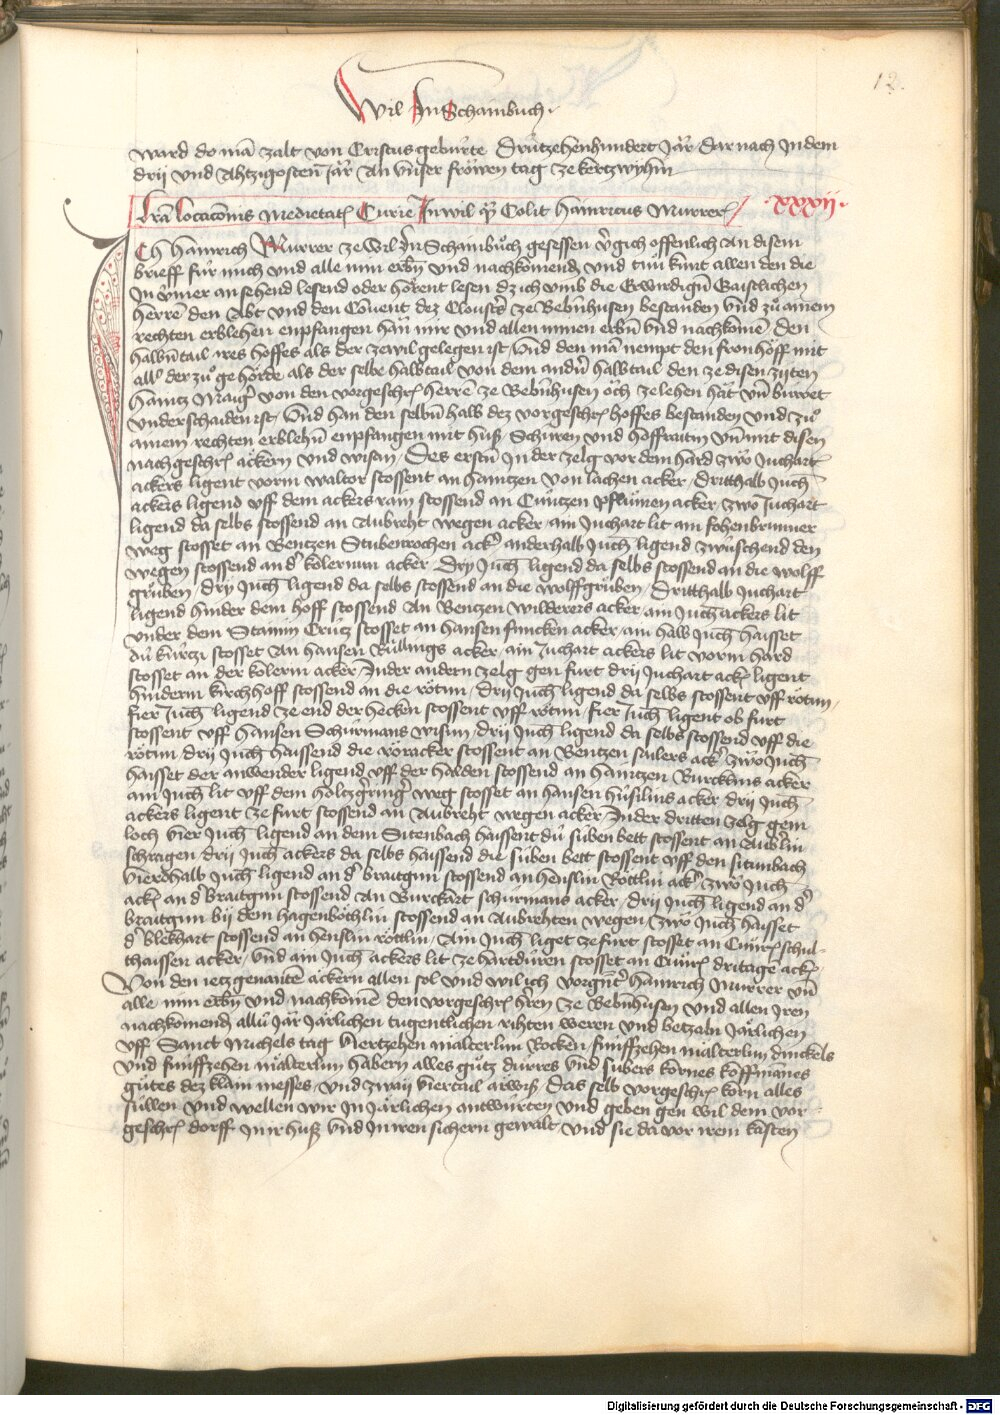 12.
Wil In Schainbuch.
ward do mā zalt von Cristus geburte Drützehenhundert Jar Dar nach In dem
drij und Ahtzigosten Jar An vnser fröwen tag ze kertzwyhin
Lrā Locacōnis medietatꝭ Curie In wil qͣ Colit Hainricus Murrer ·xxxij·
Ich Hainrich Murrer ze Wil In Schainbuͦch gesessen v̓gich offenlich An disem
brieff für mich und alle min erbn̄ und nachkomend und tuͦn kunt allen den die
In ÿmer an sehend lesend oder hörent lesen dz ich vmb die Erwirdigū Gaistlichen
herrē den Abt und den Couent dez Closters ze Bebn̄husen bestanden vnd zuͦ ainem
rechten erblehen enpfangen hān mir und allen minen erbn̄ vnd nachkomē den
halbn̄tail ires hoffes als der ze wil gelegen ist vnd den mā nempt den fronhoff mit
all̓ der zuͦ gehörde als der selbe halbtail von dem andn̄ halbtail den ze disen zijten
Haintz Mayer von den vorgeschrꝭ herrē ze Bebn̄husen öch ze lehen hāt vn̄ buwet
vnderschaiden ist Vnd han den selbn̄ halb dez vorgeschrꝭ hoffes bestanden vnd zuͦ
ainem rechten erblehn̄ enpfangen mit huß Schuren und hoffraitin vn̄ mit disen
nachgeschrꝭ äckern und wisan Des erstn̄ In der zelg vor dem hard zwo Juchart
ackers ligent vorm waltor stossent an Haintzen von lachen acker Dritthalb Juch̄
ackers ligend vff dem ackersrain stossend an Cuͦntzen pflumen acker zwo Juchart
ligend da selbs stossend an Aubreht wegen acker ain Juchart lit am fohenbrunner
weg stosset an Bentzen Stubenrochen ackꝰ anderhalb Juch̄ ligend zwüschend den
wegen stossend an d̓ kolerinun acker Dry Juch̄ ligend da selbs stossend an die wolff
gruͦben Drij Juch̄ ligend da selbs stossend an die wolffgruͦben Dritthalb Juchart
ligend hinder dem hoff stossend An Bentzen wilderers acker ain Juch̄ ackers lit
vnder dem Stainin Crütz stosset an Hansen funcken acker ain halb Juch̄ haisset
dü kürtzi stosset An Hansen Rüllings acker ain Juchart ackers lit vorm hard
stosset an der kolerin acker In der andern zelg gen furt drij Juchart ackꝭ ligent
hinderm kirchhoff stossend an die rötun drij Juch̄ ligend da selbs stossent vff rötun
fier Juch̄ ligend ze end der hecken stossent vff rötun fier Juch̄ ligent ob furt
stossent vff Hansen Schürmans wisun drij Juch̄ ligend da selbs stossend vff die
rötun drij Juch̄ haissend die röracker stossent an Bentzen sailers ackꝭ zwo Juch̄
haisset der anwender ligend vff der halden stossend an Haintzen Burcklins acker
ain Juch̄ lit vff dem holtzgringꝰ weg stosset an Hansen Hüsilins acker drij Juch̄
ackers ligent ze furt stossend an Aubreht wegen acker In der dritten zelg gem
loch vier Juch̄ ligend an dem Sitenbach haissent dü siben bett stossent an Aublin
schragen drij Juch̄ ackers da selbs haissend die siben bett stossent vff den situnbach
vierdhalb Juch̄ ligend an d̓ braitgun stossend an Henslin Röttlin ackꝰ zwo Juch̄
ackꝭ an d̓ braitgun stossend An Burckart schürmans acker drij Juch̄ ligend an d̓
braitgun bij dem hagenböchlin stossend an Aubrehten wegen zwo Juch̄ haisset
d̓ blekhart stossend an Henslin röttlin Ain Juch̄ liget ze furt stosset an Cuͦnrꝭ schul-
thaissen acker vnd ain Juch̄ ackers lit ze hartdüren stosset an Cuͦnrꝭ dritagē ackꝭ
Von den ietzgenantē äckern allen sol und wil ich vorgn̄t̓ Hainrich Murrer vn̄
alle min erbn̄ und nachkomē den vorgeschrꝭ hrēn ze Bebn̄husen und allen Iren
nachkomend allü Jar Järlichen tugentlichen rihten weren und betzaln Järlichen
vff Sanct Michels tag viertzehen malterlun Rocken fünffzehen malterlun dinckels
vnd fünffzehen malterlun habern alles guͦtz dürres vnd subers kornes koffmānes
guͦtes dez klain messes vnd zwaij viertail ärwiß Das selb vorgeschrꝭ korn alles
süllen und wellen wir In Järlichen antwürten vnd geben gen wil dem vor
geschrꝭ dorff In ir huß vnd In iren sichern gewalt vnd sie da vor irem kasten
Digitalisierung gefördert durch die Deutsche Forschungsgemeinschaft - DFG